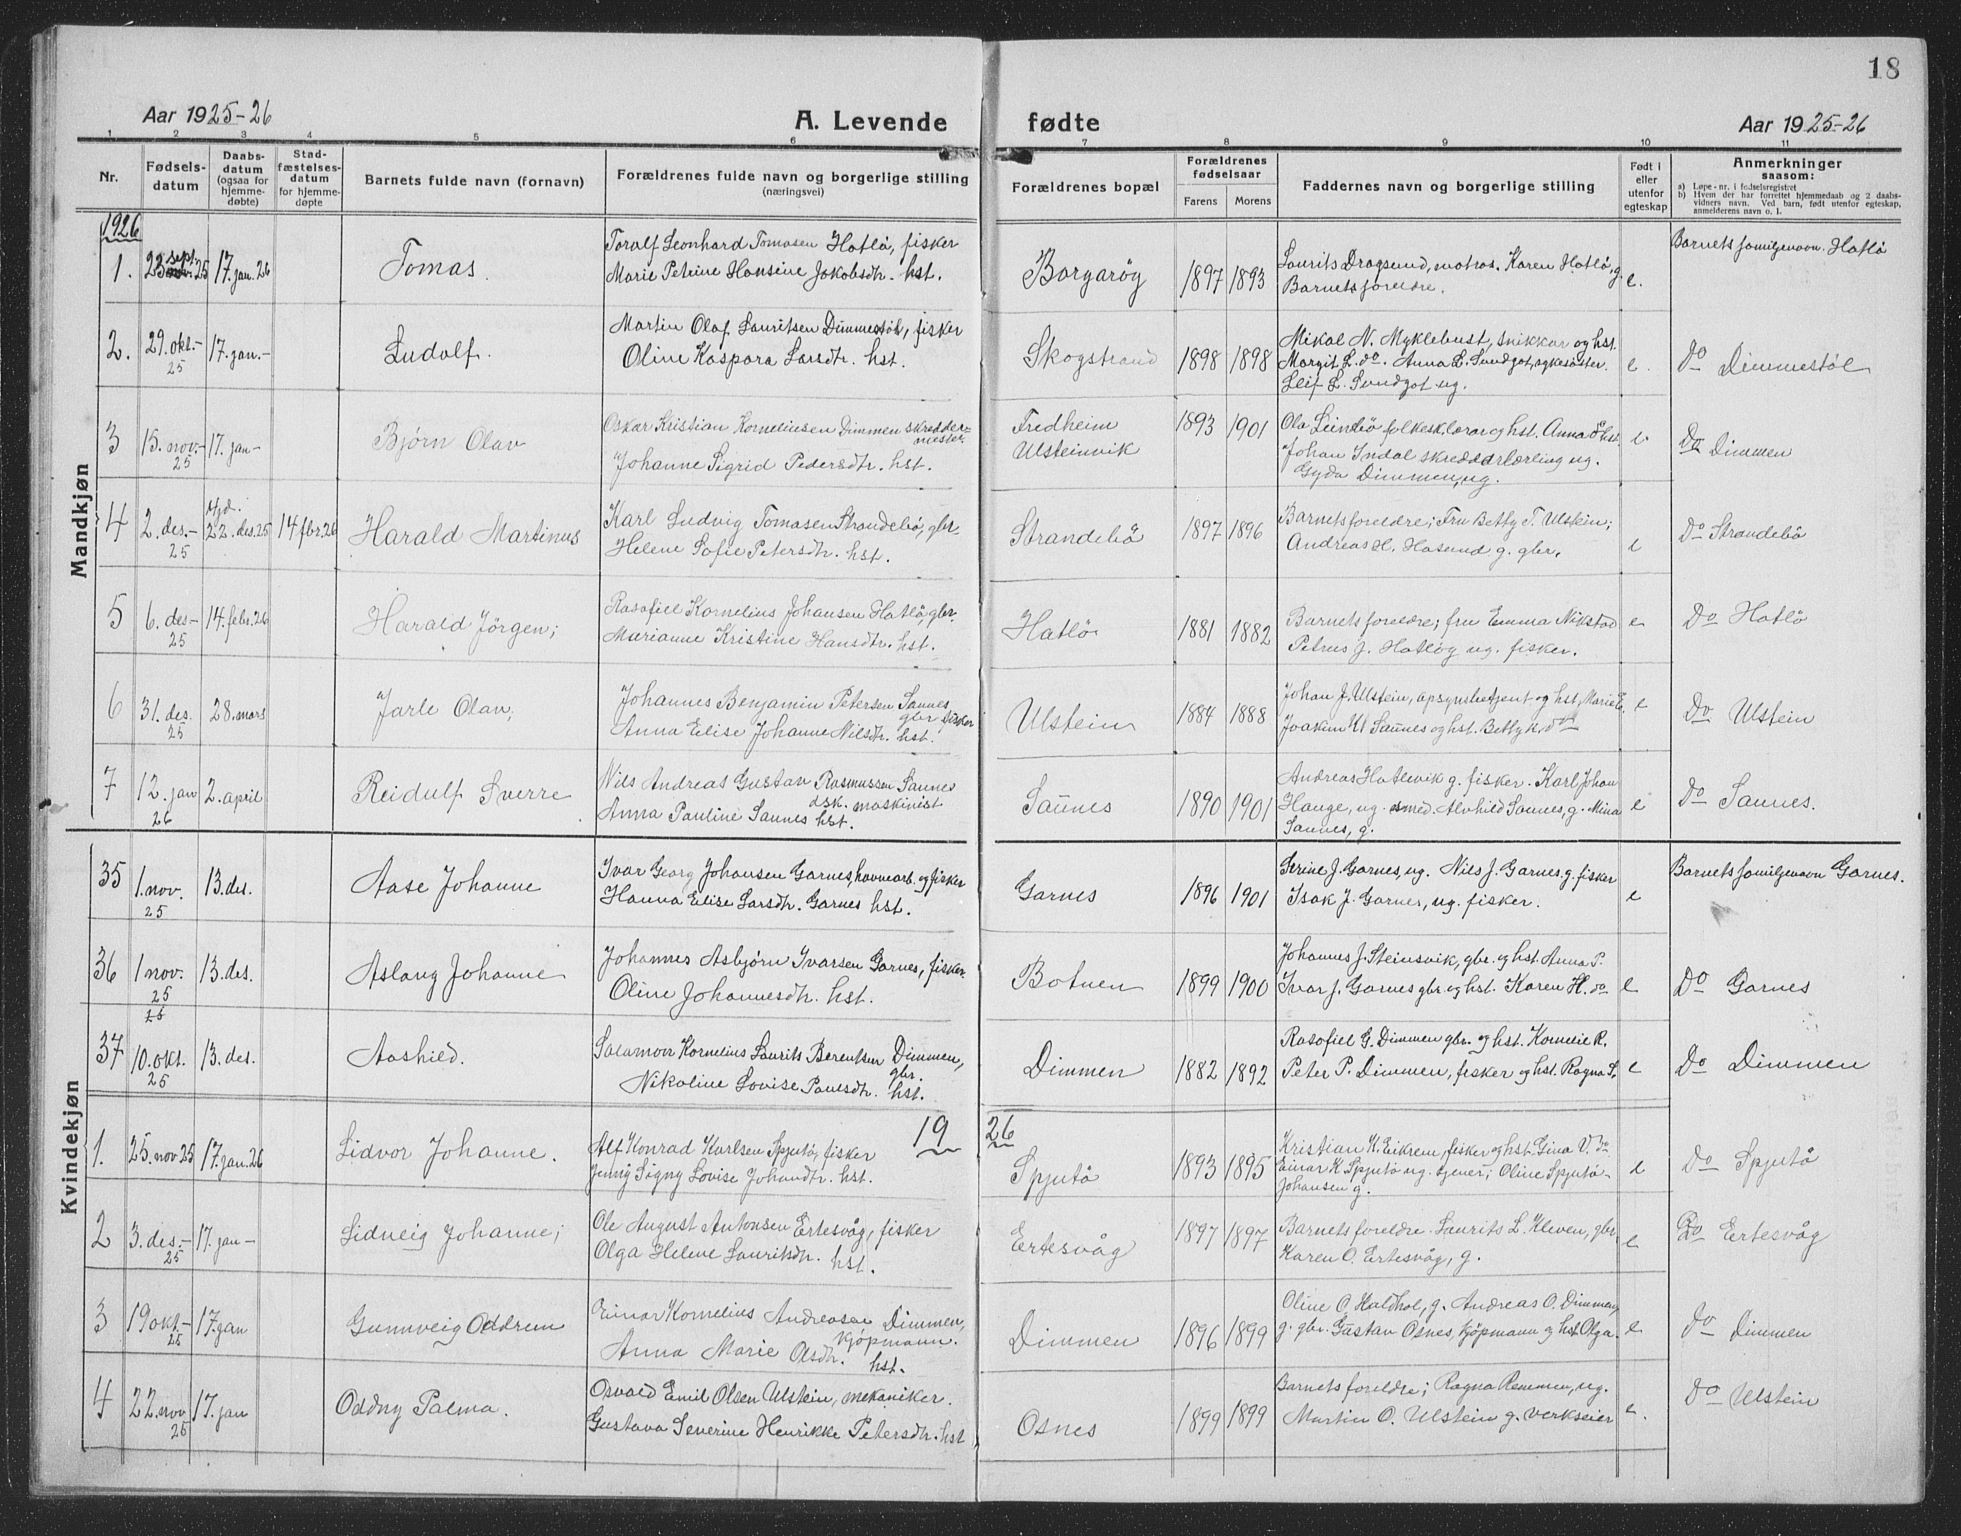 18
Aar 1925-26
A. Levende
fødte
Aar 1925-26
1 2 3 4 5 6 7 8 9 10 11
Nr.
Fødsels-
datum
Daabs-
datum
(ogsaa for
hjemme-
døbte)
Stad-
fæstelses-
datum
for hjemme-
døpte
Barnets fulde navn (fornavn)
Forældrenes fulde navn og borgerlige stilling
(næringsvei)
Forældrenes bopæl
Forældrenes
fødselsaar
Farens Morens
Faddernes navn og borgerlige stilling
Født i
eller
utenfor
egteskap
Anmerkninger
saasom:
a) Løpe-nr. i fødselsregistret
b) Hvem der har forrettet hjemmedaab og 2 daabs-
vidners navn. Ved barn, født utenfor egteskap,
anmelderens navn o. l.
Mandkjøn
1926
1. 23 sept. 25 17. jan. 26
Tomas.
Toralf Leonhard Tomasen Hatlø, fisker
Marie Petrine Hansine Jakobsdtr. hst.
Borgarøy 1897 1893
Laurits Dragsund, matros. Karen Hatlø, g.
Barnets foreldre.
e.
Barnets familjenavn Hatlø
2. 29. okt.- 25 17. jan.-
Ludolf.
Martin Olaf Lauritsen Dimmestøl, fisker
Oline Kaspara Larsdtr. hst.
Skogstrand 1898 1898
Mikal N. Myklebust, snikkar og hst.
Margit L. do. Anna L. Sundgot, sykesøster.
Leif L. Sundgot ug.
e.
Do Dimmestøl
3 15. nov.- 25 17. jan-
Bjørn Olav
Oskar Kristian Korneliusen Dimmen skredder-
mester.
Johanne Sigrid Pedersdtr. hst.
Fredheim
Ulsteinvik
1893 1901
Ola Leinebø folkesklærar og hst. Anna
Johan Indal skreddarlærling ug.
Gyda Dimmen, ug.
e
Do Dimmen
4 2. des.- 25 22. des. 25 14 fbr. 26
Harald Martinus
Karl Ludvig Tomasen Strandebø, gbr.
Helene Sofie Petersdtr. hst.
Strandebø 1897 1896
Barnets foreldre; Fru Betty T. Ulstein;
Andreas H. Hasund g. gbr.
e
Do Strandebø
5 6. des- 25 14. febr. 26
Harald Jørgen;
Rasofiel Kornelius Johansen Hatlø gbr.
Marianne Kristine Hansdtr. hst.
Hatlø 1881 1882
Barnets foreldre; fru Emma Nikstad
Petrus J. Hatløy ug. fisker.
e
Do Hatlø
6 31. des. 25 28. mars
Jarle Olav;
Johannes Benjamin Petersen Saunes
gbr. fisker
Anna Elise Johanne Nilsdtr. hst.
Ulstein 1884 1888
Johan J. Ulstein, opsynsbetjent og hst. Marie E.
Joakim U Saunes og hst. Betty K. do
e
Do Ulstein
7 12. jan 26 2. april
Reidulf Sverre
Nils Andreas Gustav Rasmussen Saunes
dsk. maskinist
Anna Pauline Saunes hst.
Saunes 1890 1901
Andreas Hatlevik g. fisker. Karl Johan
Hauge, ug. smed. Alvhild Saunes, g. Mina
Saunes, g.
e
Do Saunes.
Kvindekjøn
35 1. nov. 25 13. des.
Aase Johanne
Ivar Georg Johansen Garnes, havnearb. og fisker
Hanna Elise Larsdtr. Garnes hst.
Garnes 1896 1901
Serine J. Garnes, ug. Nils J. Garnes, g. fisker
Isak J. Garnes, ug. fisker.
e
Barnets familjenavn Garnes.
36 1 nov. 25 13. des.
Aslaug Johanne
Johannes Asbjørn Ivarsen Garnes, fisker
Oline Johannesdtr. hst.
Botnen 1899 1900
Johannes J. Steinsvik, gbr. og hst. Anna P.
Ivar J. Garnes gbr. og hst. Karen H. do
e
Do Garnes
37 10. okt. 25 13. des.
Aashild.
Salamon Kornelius Laurits Berentsen Dimmen,
gbr.
Nikoline Lovise Paulsdtr. hst.
Dimmen 1882 1892
Rasofiel G. Dimmen gbr. og hst. Kornelie R.
Peter P. Dimmen, fisker og hst. Ragna S.
e
Do Dimmen
1926
1. 25. nov 25 17. jan. 26
Lidvor Johanne.
Alf Konrad Karlsen Spjutø, fisker
Jenny Signy Lovise Johandtr. hst.
Spjutø 1893 1895
Kristian K. Eikrem fisker og hst. Gina V. do
Einar K. Spjutø ug. tjener; Oline Spjutø-
Johansen g.
e
Do Spjutø
2 3. des.- 25 17. jan-
Lidveig Johanne;
Ole August Antonsen Ertesvåg, fisker
Olga Helene Lauritsdtr. hst.
Ertesvåg 1897 1897
Barnets foreldre. Laurits L. Kleven, gbr.
Karen O. Ertesvåg, g.
e
Do Ertesvåg
3 19 okt- 25 17. jan
Gunnveig Oddrun
Einar Kornelius Andreasen Dimmen,
Kjøpmann.
Anna Marie Olsdtr. hst.
Dimmen 1896 1899
Oline O. Haldhol, g. Andreas O. Dimmen,
g. gbr. Gustav Osnes, kjøpmann og hst. Olga.
e
Do Dimmen
4 22. nov 25 17. jan
Oddny Palma.
Osvald Emil Olsen Ulstein, mekaniker.
Gustava Severine Henrikke Petersdtr. hst
Osnes 1899 1899
Barnets foreldre; Ragna Remmen, ug.
Martin O. Ulstein g. verkseier
e.
Do Ulstein